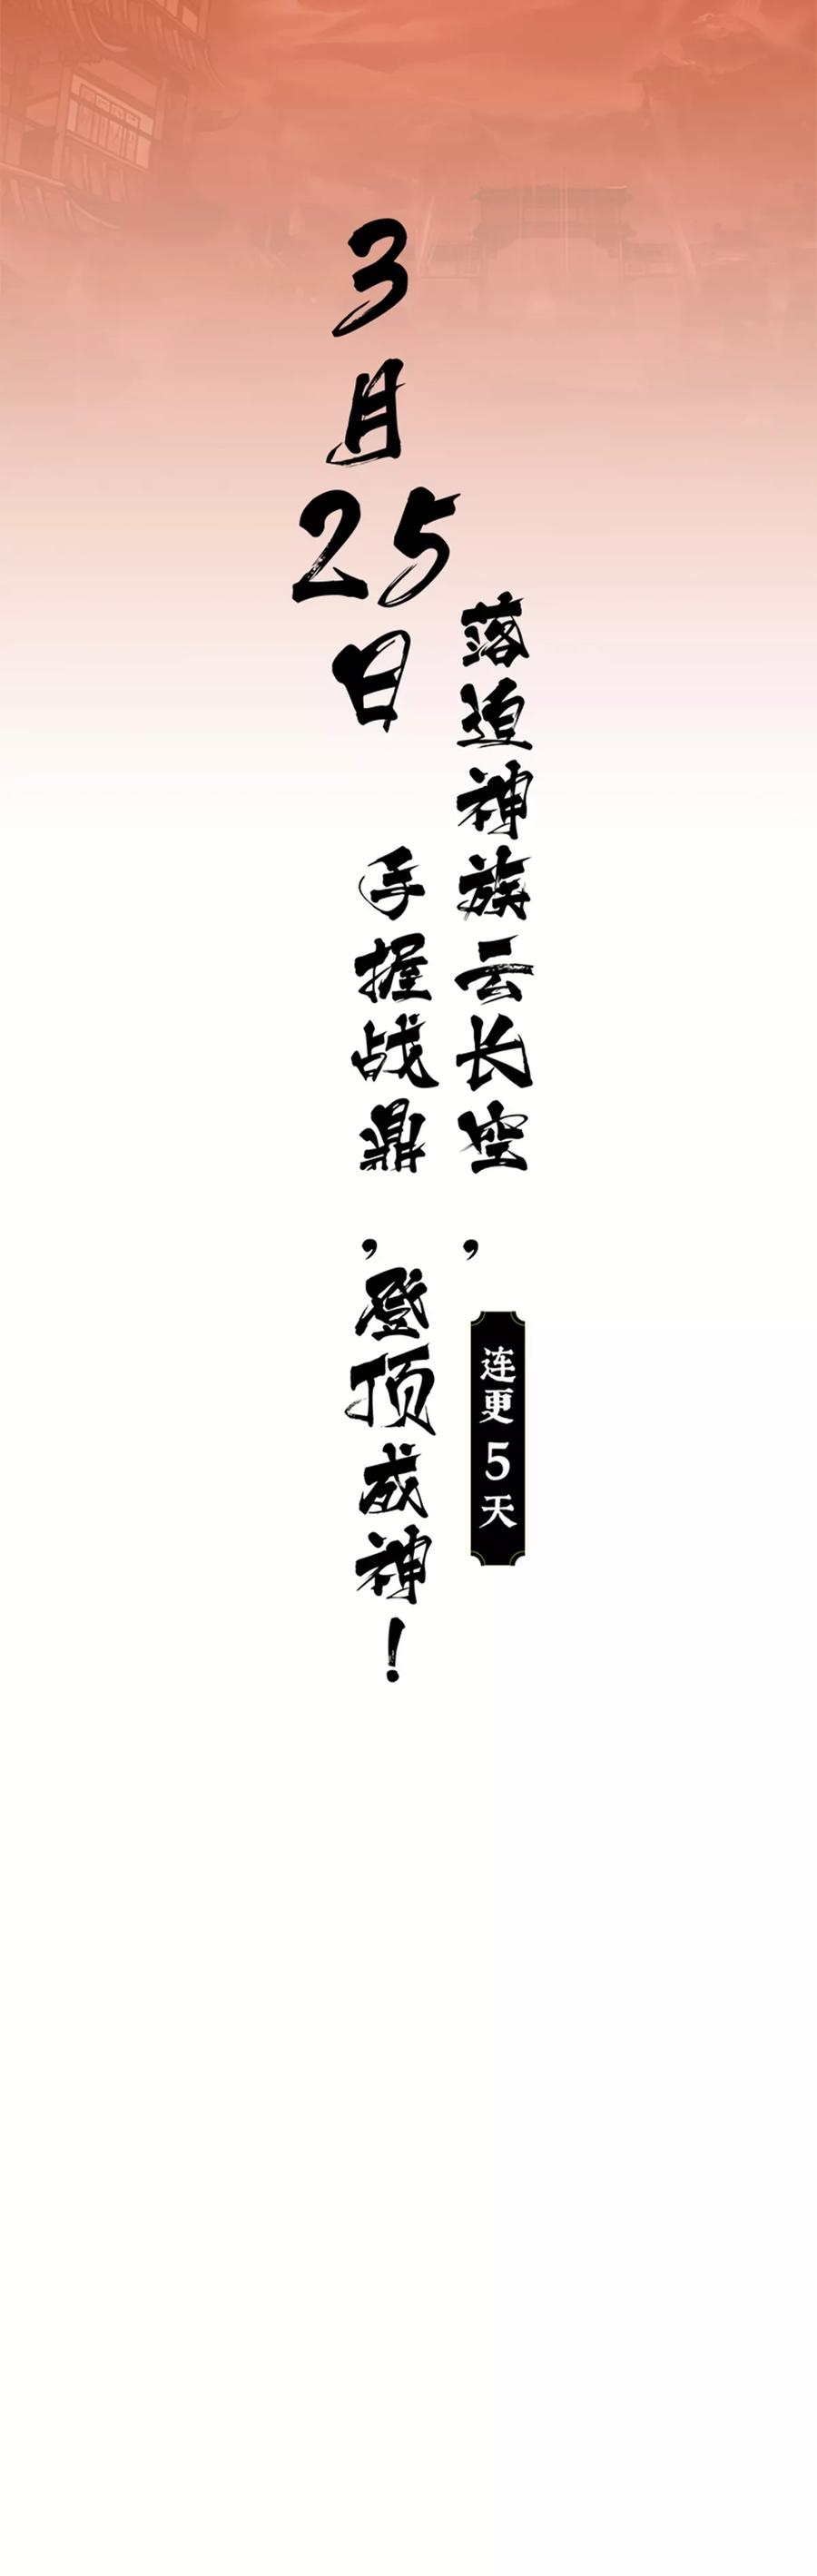 3月25日
落迫神族云长空，
手握战鼎，登顶成神！
连更5天